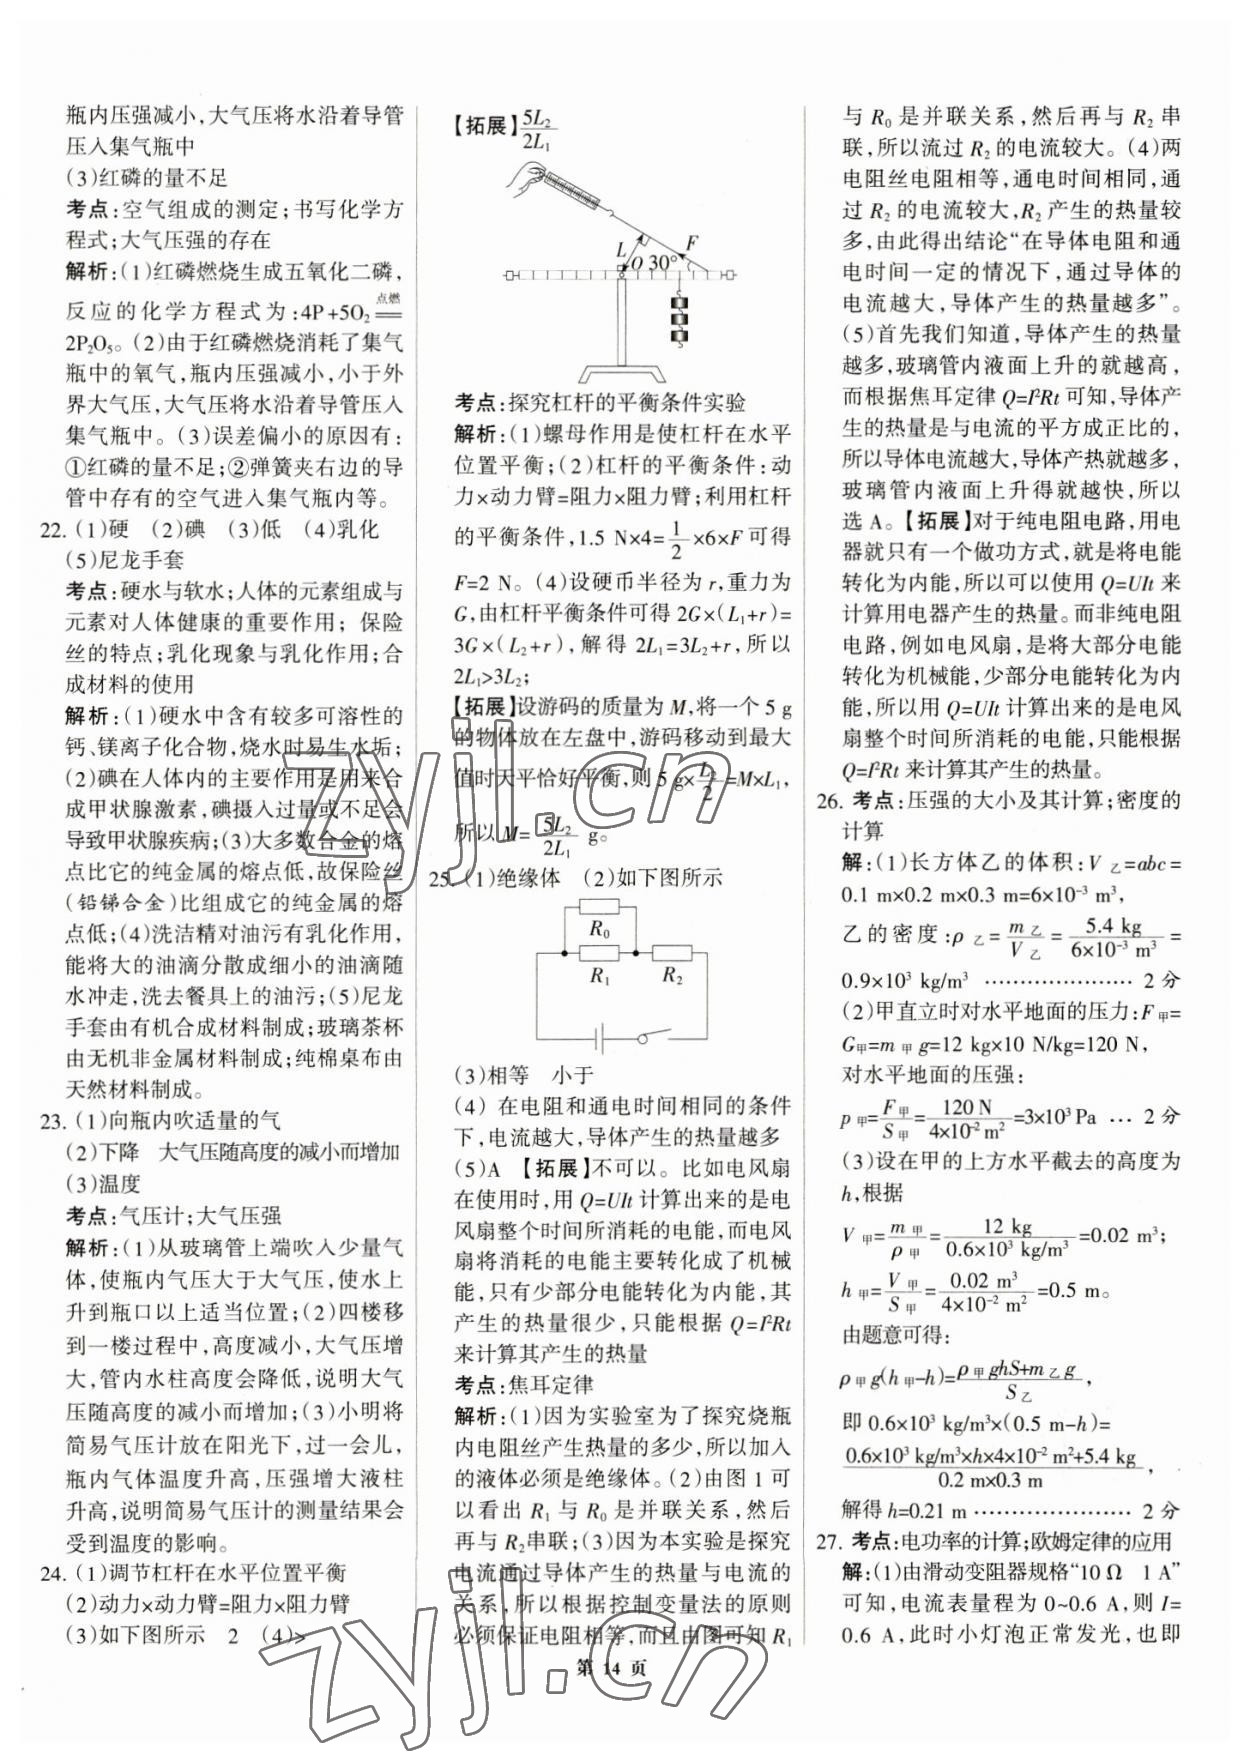 瓶内压强减小,大气压将水沿着导管
压入集气瓶中
(3)红磷的量不足
考点:空气组成的测定;书写化学方
程式;大气压强的存在
解析:(1)红磷燃烧生成五氧化二磷,
反应的化学方程式为:4P+5O₂ 点燃══
2P₂O₅。(2)由于红磷燃烧消耗了集气
瓶中的氧气,瓶内压强减小,小于外
界大气压,大气压将水沿着导管压入
集气瓶中。(3)误差偏小的原因有:
①红磷的量不足;②弹簧夹右边的导
管中存有的空气进入集气瓶内等。
22. (1)硬 (2)碘 (3)低 (4)乳化
(5)尼龙手套
考点:硬水与软水;人体的元素组成与
元素对人体健康的重要作用;保险
丝的特点;乳化现象与乳化作用;合
成材料的使用
解析:(1)硬水中含有较多可溶性的
钙、镁离子化合物,烧水时易生水垢;
(2)碘在人体内的主要作用是用来合
成甲状腺激素,碘摄入过量或不足会
导致甲状腺疾病;(3)大多数合金的熔
点比它的纯金属的熔点低,故保险丝
(铅锑合金)比组成它的纯金属的熔
点低;(4)洗洁精对油污有乳化作用,
能将大的油滴分散成细小的油滴随
水冲走,洗去餐具上的油污;(5)尼龙
手套由有机合成材料制成;玻璃茶杯
由无机非金属材料制成;纯棉桌布由
天然材料制成。
23. (1)向瓶内吹适量的气
(2)下降 大气压随高度的减小而增加
(3)温度
考点:气压计;大气压强
解析:(1)从玻璃管上端吹入少量气
体,使瓶内气压大于大气压,使水上
升到瓶口以上适当位置;(2)四楼移
到一楼过程中,高度减小,大气压增
大,管内水柱高度会降低,说明大气
压随高度的减小而增加;(3)小明将
简易气压计放在阳光下,过一会儿,
瓶内气体温度升高,压强增大液柱
升高,说明简易气压计的测量结果会
受到温度的影响。
24. (1)调节杠杆在水平位置平衡
(2)动力×动力臂=阻力×阻力臂
(3)如下图所示 2 (4)>
【拓展】5L₂/2L₁
L O 30° F
考点:探究杠杆的平衡条件实验
解析:(1)螺母作用是使杠杆在水平
位置平衡;(2)杠杆的平衡条件:动
力×动力臂=阻力×阻力臂;利用杠杆
的平衡条件,1.5 N×4=1/2×6×F可得
F=2 N。(4)设硬币半径为r,重力为
G,由杠杆平衡条件可得2G×(L₁+r)=
3G×(L₂+r),解得2L₁=3L₂+r,所以
2L₁>3L₂;
【拓展】设游码的质量为M,将一个5 g
的物体放在左盘中,游码移动到最大
值时天平恰好平衡,则5 g×L₂/2=M×L₁,
所以M=5L₂/2L₁ g。
25. (1)绝缘体 (2)如下图所示
R₀
R₁ R₂
(3)相等 小于
(4)在电阻和通电时间相同的条件
下,电流越大,导体产生的热量越多
(5)A 【拓展】不可以。比如电风扇
在使用时,用Q=UIt计算出来的是电
风扇整个时间所消耗的电能,而电风
扇将消耗的电能主要转化成了机械
能,只有少部分电能转化为内能,其
产生的热量很少,只能根据Q=I²Rt
来计算其产生的热量
考点:焦耳定律
解析:(1)因为实验室为了探究烧瓶
内电阻丝产生热量的多少,所以加入
的液体必须是绝缘体。(2)由图1可
以看出R₁与R₀是并联关系,然后
再与R₂串联;(3)因为本实验是探究
电流通过导体产生的热量与电流的
关系,所以根据控制变量法的原则
必须保证电阻相等,而且由图可知R₁
与R₀是并联关系,然后再与R₂串
联,所以流过R₂的电流较大。(4)两
电阻丝电阻相等,通电时间相同,通
过R₂的电流较大,R₂产生的热量较
多,由此得出结论“在导体电阻和通
电时间一定的情况下,通过导体的
电流越大,导体产生的热量越多”。
(5)首先我们知道,导体产生的热量
越多,玻璃管内液面上升的就越高,
而根据焦耳定律Q=I²Rt可知,导体产
生的热量是与电流的平方成正比的,
所以导体电流越大,导体产热就越多,
玻璃管内液面上升得就越快,所以
选A。【拓展】对于纯电阻电路,用电
器就只有一个做功方式,就是将电能
转化为内能,所以可以使用Q=UIt来
计算用电器产生的热量。而非纯电阻
电路,例如电风扇,是将大部分电能
转化为机械能,少部分电能转化为内
能,所以用Q=UIt计算出来的是电风
扇整个时间所消耗的电能,只能根据
Q=I²Rt来计算其产生的热量。
26. 考点:压强的大小及其计算;密度的
计算
解:(1)长方体乙的体积:V乙=abc=
0.1 m×0.2 m×0.3 m=6×10⁻³ m³,
乙的密度:ρ乙=m乙/V乙=5.4 kg/6×10⁻³ m³=
0.9×10³ kg/m³ ………………… 2分
(2)甲直立时对水平地面的压力:F甲=
G甲=m甲g=12 kg×10 N/kg=120 N,
对水平地面的压强:
p甲=F甲/S甲=120 N/4×10⁻² m²=3×10³ Pa … 2分
(3)设在甲的上方水平截去的高度为
h,根据
V甲=m甲/ρ甲=12 kg/0.6×10³ kg/m³=0.02 m³;
h甲=V甲/S甲=0.02 m³/4×10⁻² m²=0.5 m。
由题意可得:
ρ甲g(h甲-h)=ρ甲ghS+m乙g/S乙,
即0.6×10³ kg/m³×(0.5 m-h)=
0.6×10³ kg/m³×h×4×10⁻² m²+5.4 kg/0.2 m×0.3 m,
解得h=0.21 m ………………… 2分
27. 考点:电功率的计算;欧姆定律的应用
解:(1)由滑动变阻器规格“10 Ω 1 A”
可知,电流表量程为0~0.6 A,则I=
0.6 A,此时小灯泡正常发光,也即
第 14 页
zyjl.cn
zyjl.cn